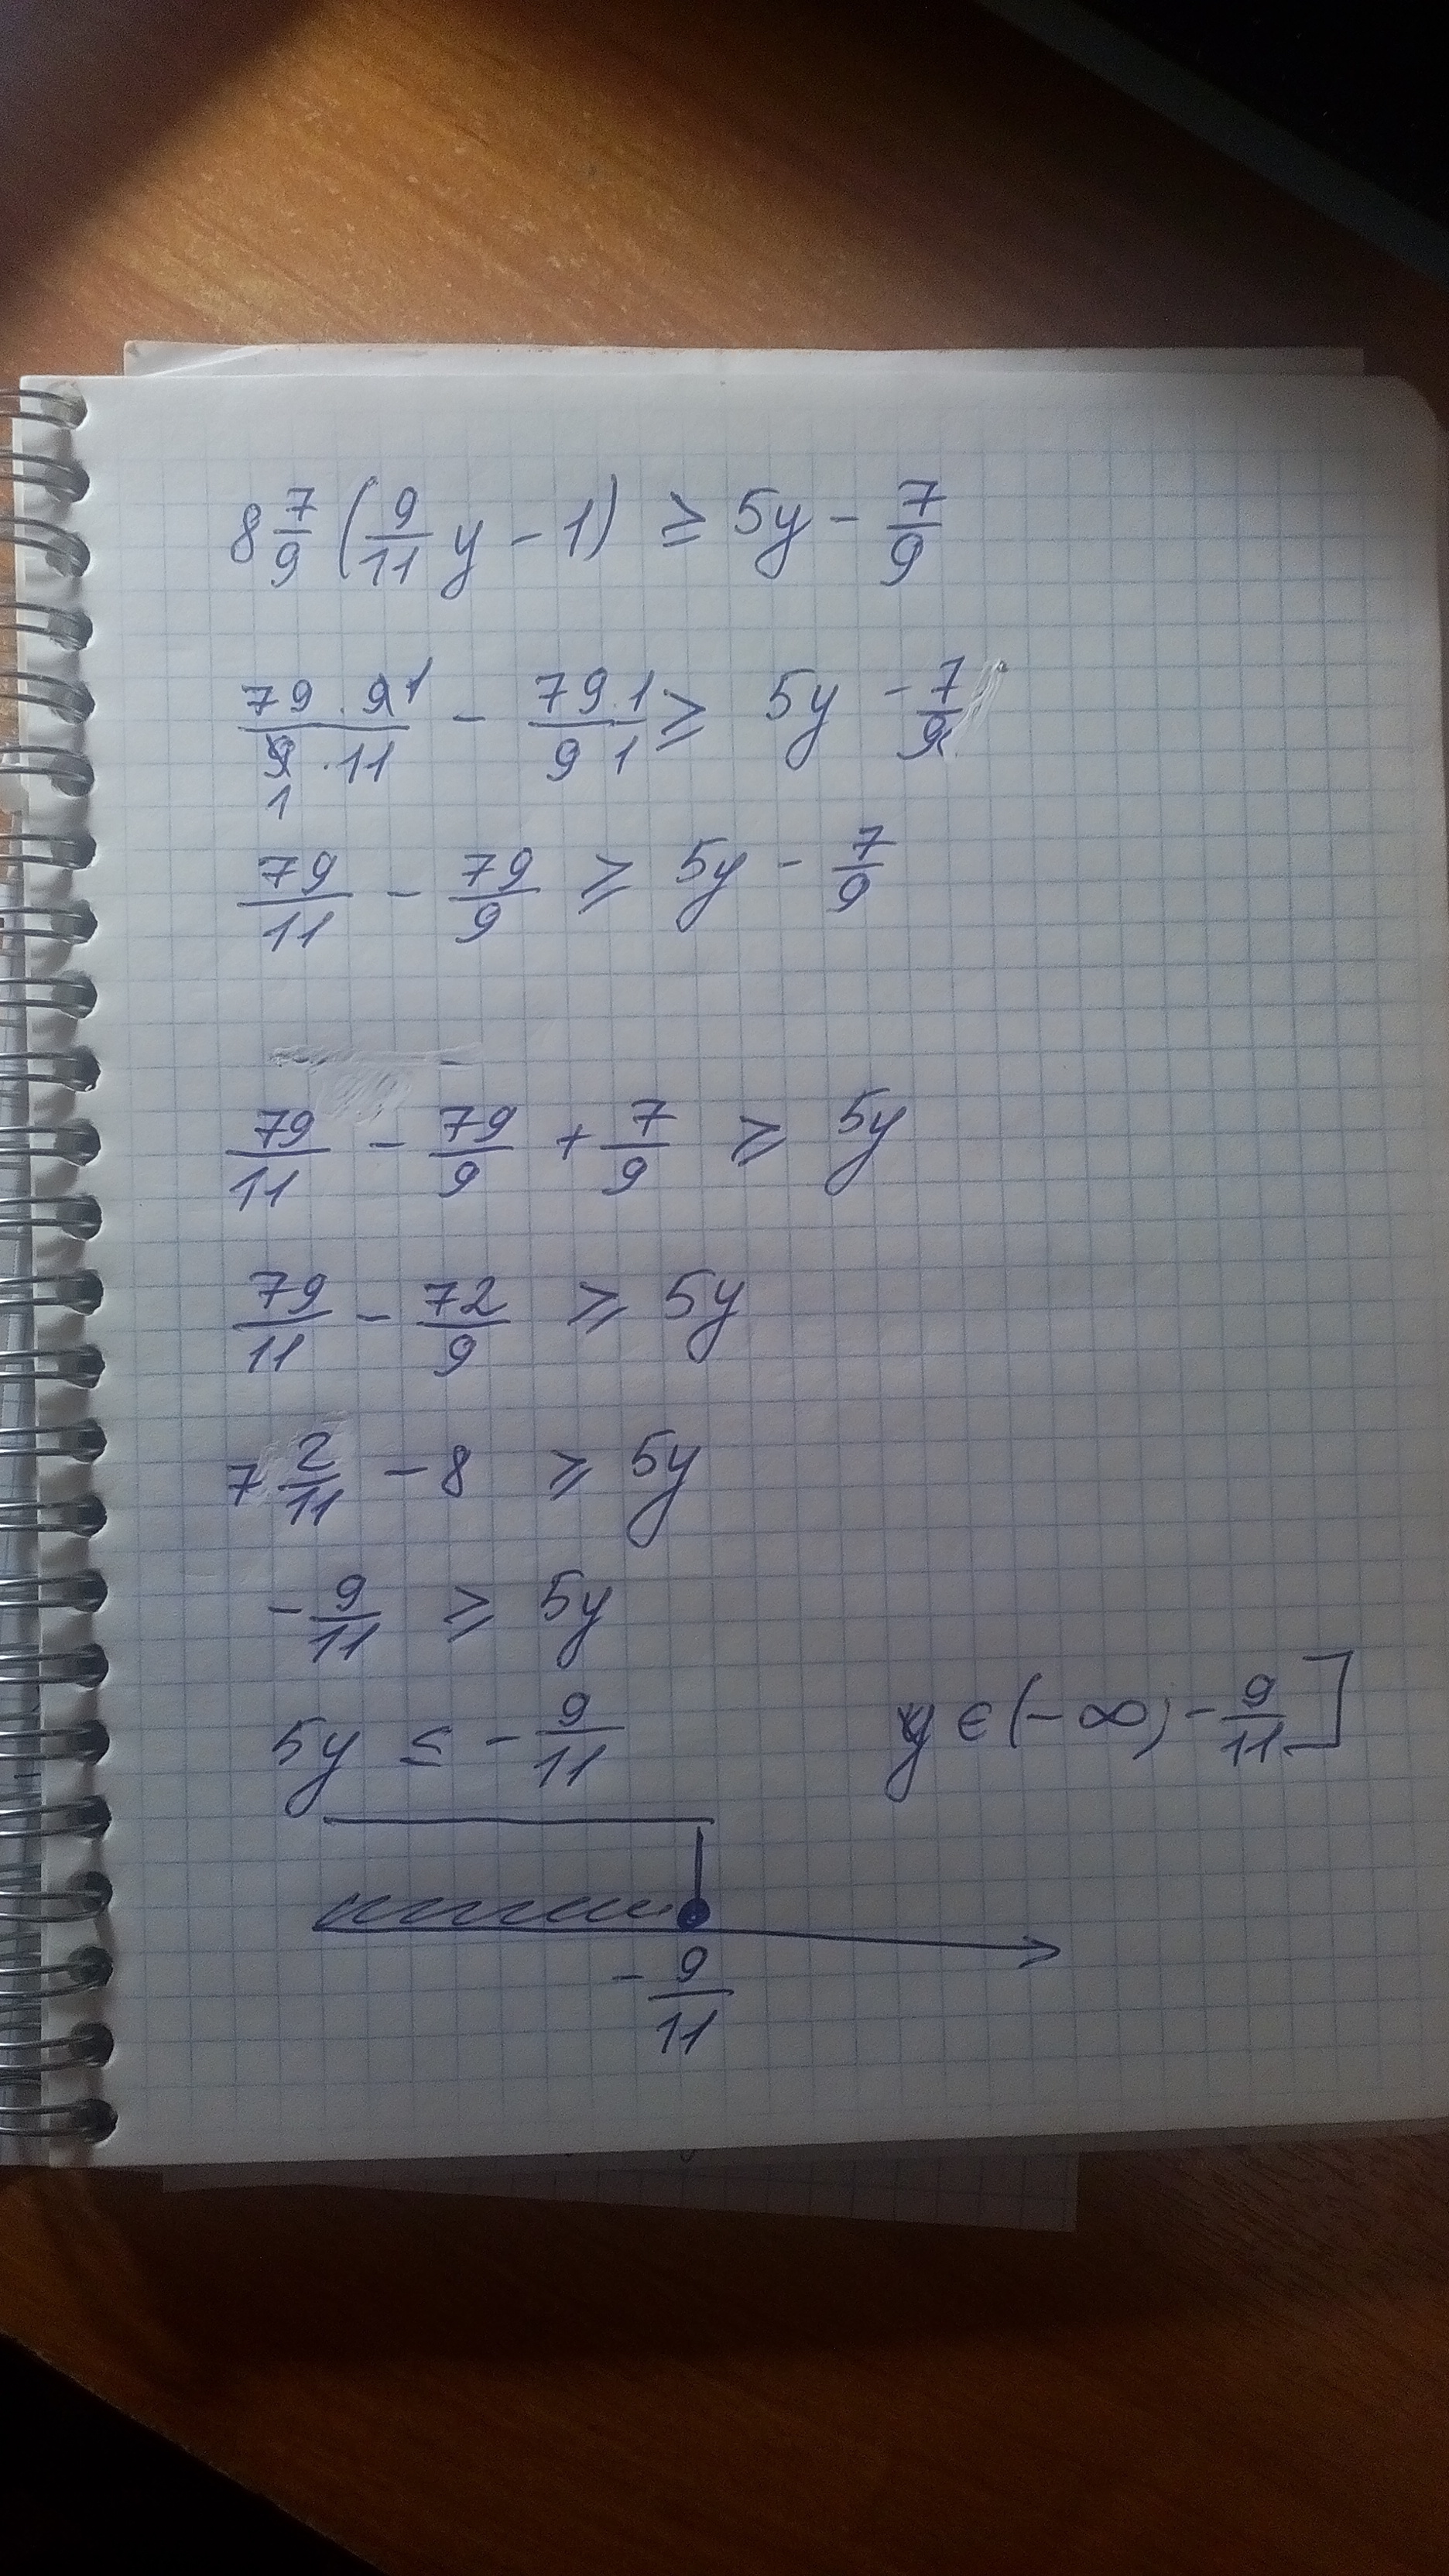 8 7/9 (9/11 y - 1) ≥ 5y - 7/9
79 · 9 1 / 9 · 11 - 79 · 1 / 9 1 ≥ 5y - 7/9
1
79/11 - 79/9 ≥ 5y - 7/9
79/11 - 79/9 + 7/9 ≥ 5y
79/11 - 72/9 ≥ 5y
7 2/11 - 8 ≥ 5y
- 9/11 ≥ 5y
5y ≤ - 9/11
y ∈ (-∞; - 9/11]
- 9/11